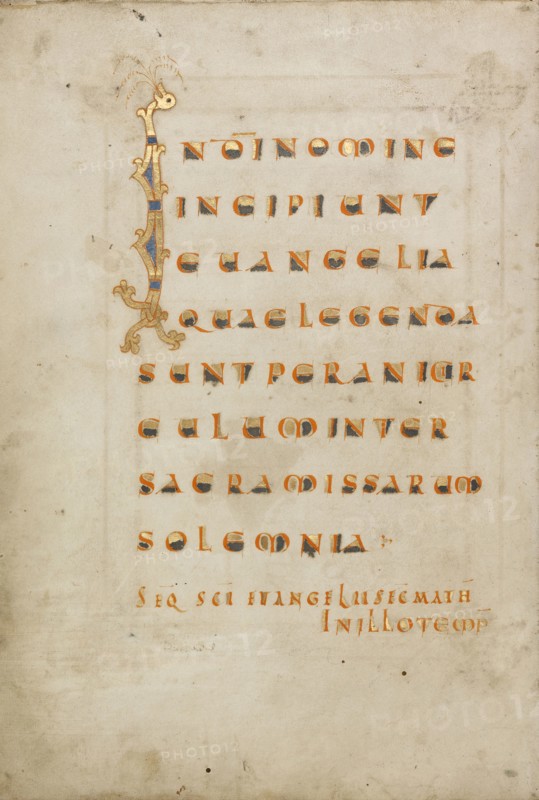 IN DĪ NOMINE
INCIPIUNT
EUANGELIA
QUAE LEGENDA
SUNT PER ANI CIR
CULUM INTER
SACRA MISSARUM
SOLEMNIA
SEQ̄ SC̄I EUANGELII SEC̄ MATH̄
IN ILLO TEMP̄
PHOTO12